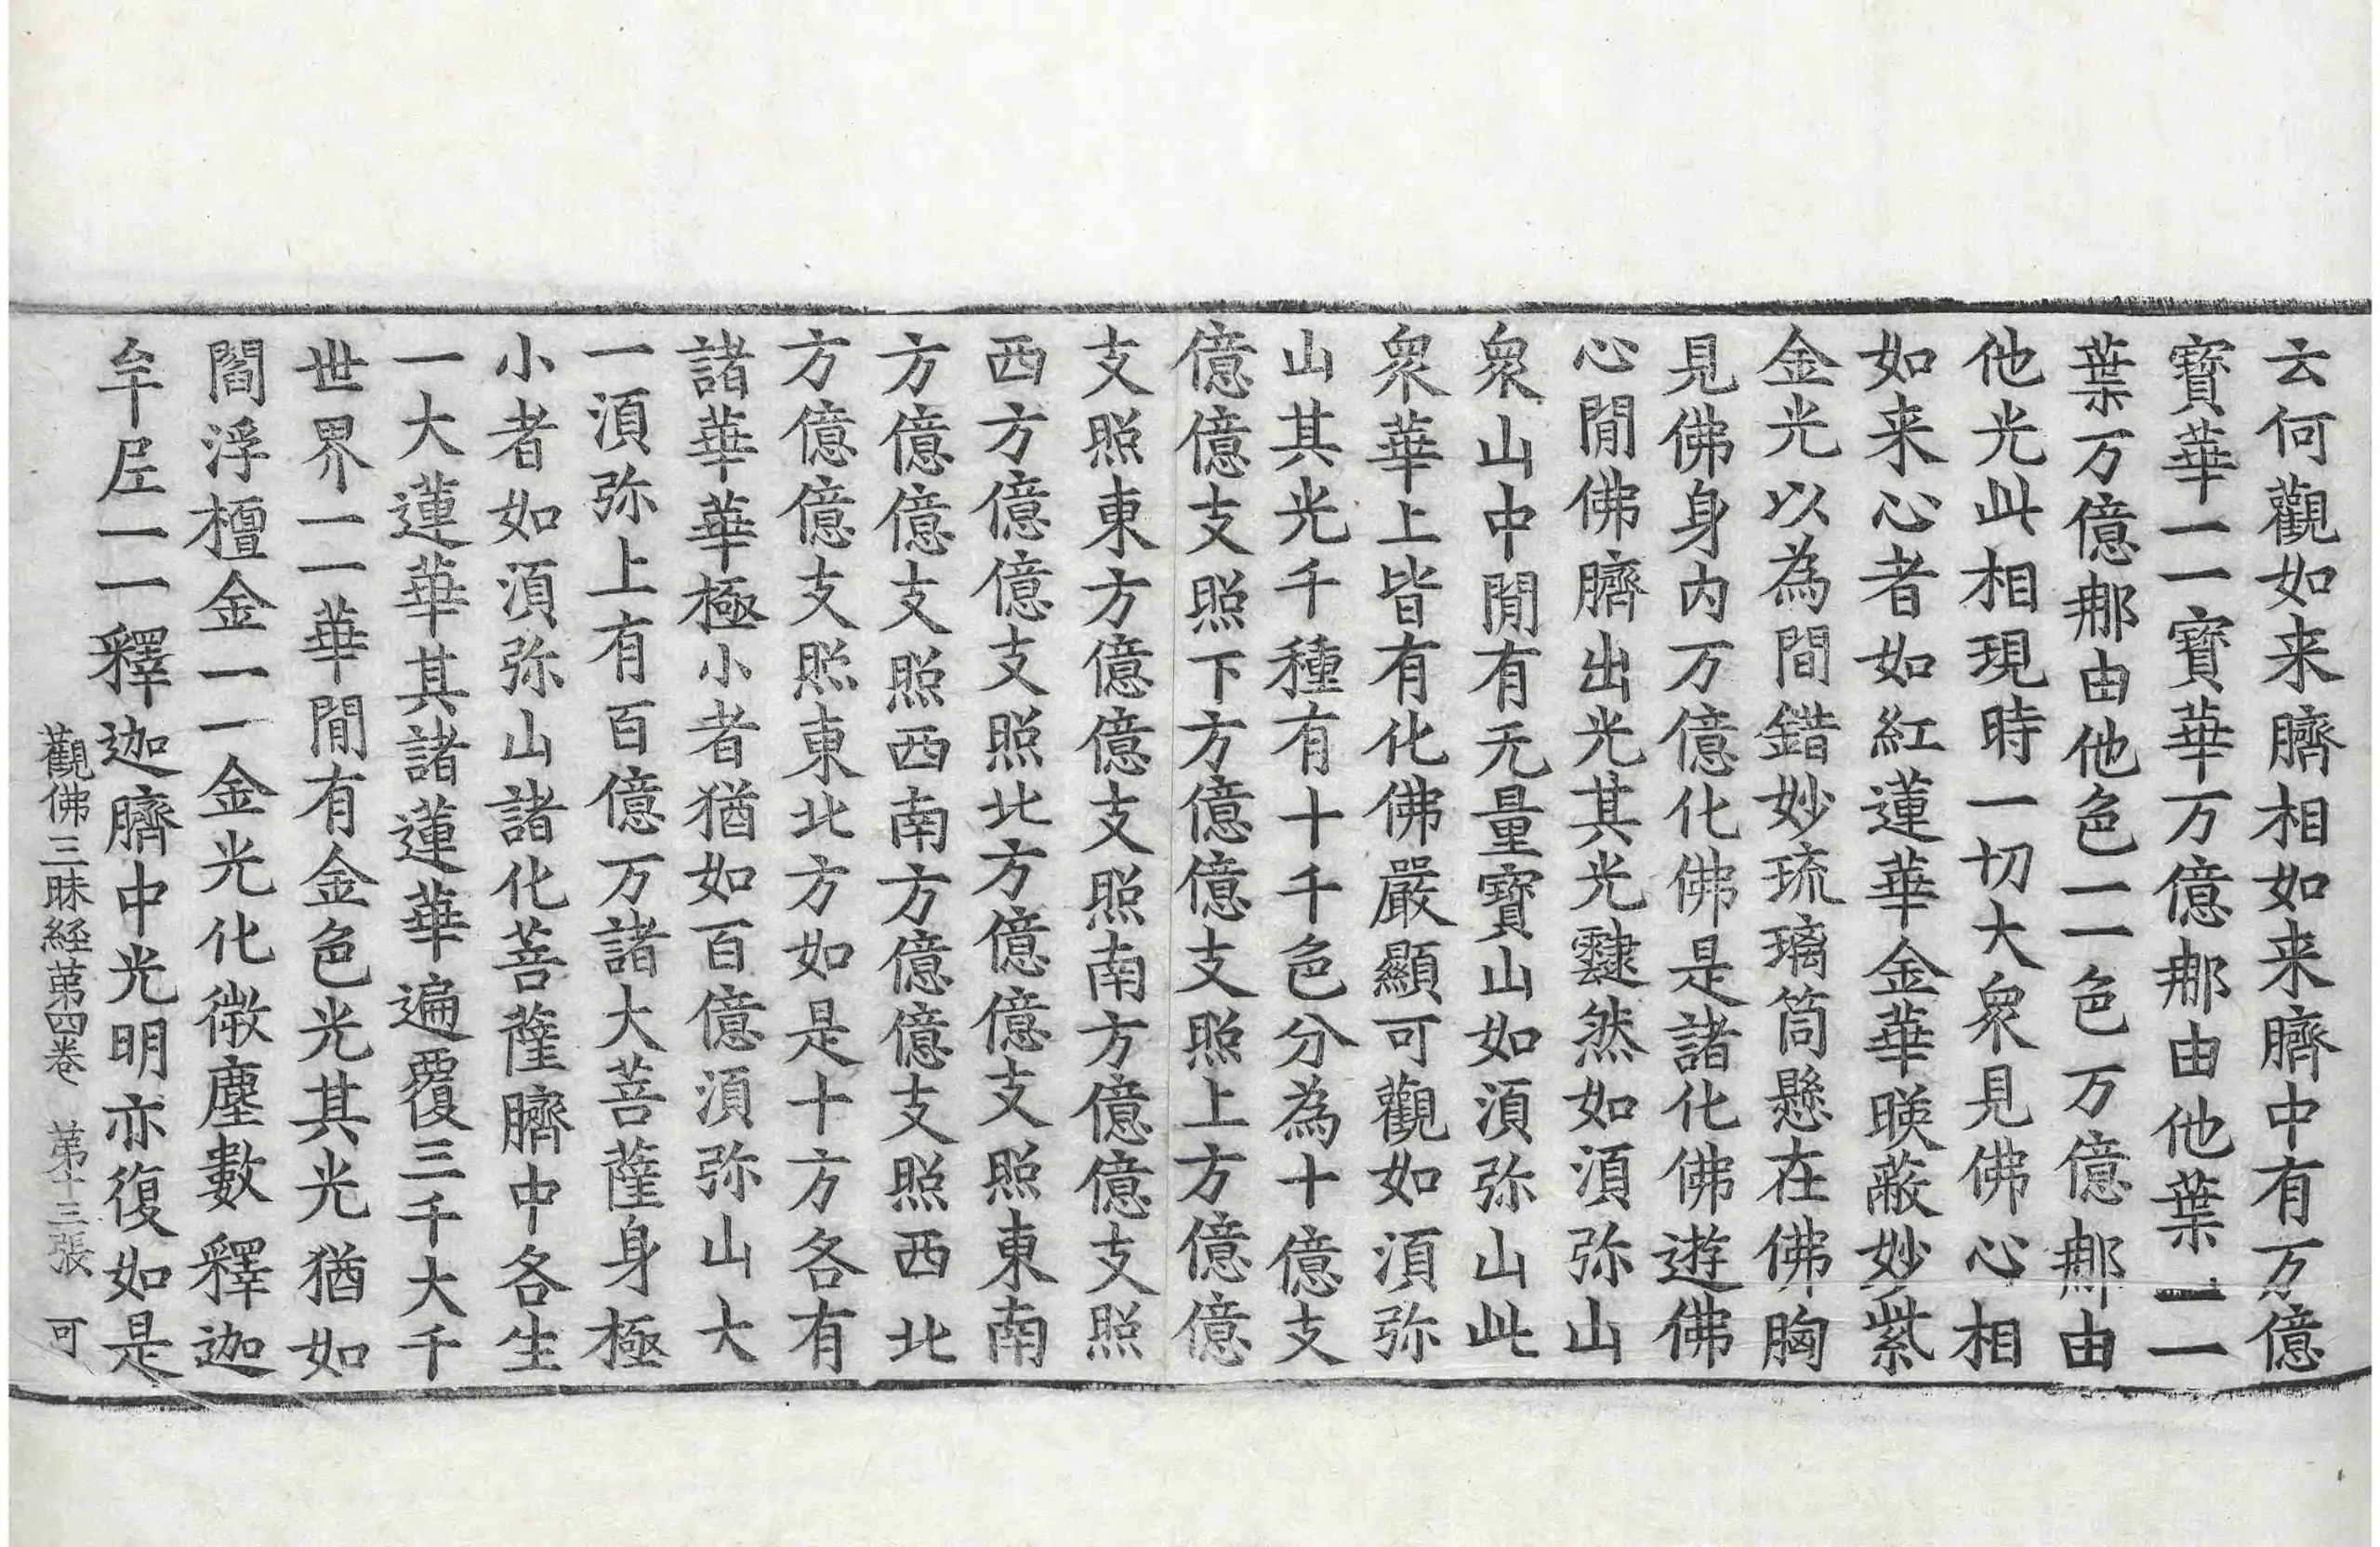 云何觀如来臍相如来臍中有万億
寶華一一寶華万億那由他葉一一
葉万億那由他色一一色万億那由
他光此相現時一切大衆見佛心相
如来心者如紅蓮華金華暎蔽妙紫
金光以為間錯妙琉璃筒懸在佛胸
見佛身内万億化佛是諸化佛遊佛
心閒佛臍出光其光靉然如湏弥山
衆山中閒有无量寶山如湏弥山此
衆華上皆有化佛嚴顯可觀如湏弥
山其光千種有十千色分為十億支
億億支照下方億億支照上方億億
支照東方億億支照南方億億支照
西方億億支照北方億億支照東南
方億億支照西南方億億支照西北
方億億支照東北方如是十方各有
諸華華極小者猶如百億湏弥山大
一湏弥上有百億万諸大菩薩身極
小者如湏弥山諸化菩薩臍中各生
一大蓮華其諸蓮華遍覆三千大千
世界一一華閒有金色光其光猶如
閻浮檀金一一金光化微塵數釋迦
牟𡰱一一釋迦臍中光明亦復如是
觀佛三昧経苐四卷　苐十三張　可